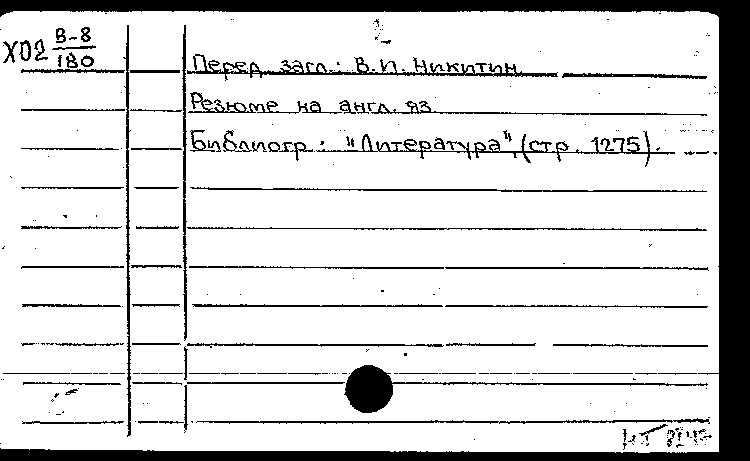 2
Х02 В-8/180
Перед загл.: В.И. Никитин
Резюме на англ. яз
Библиогр.: "Литература", (стр. 1275).